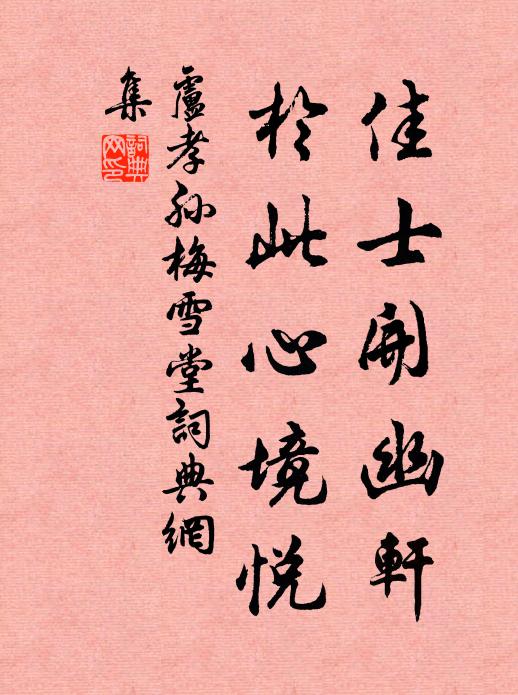 佳士開幽軒
於此心境悅
盧孝孫梅雪堂詞典網
集
詞典網印